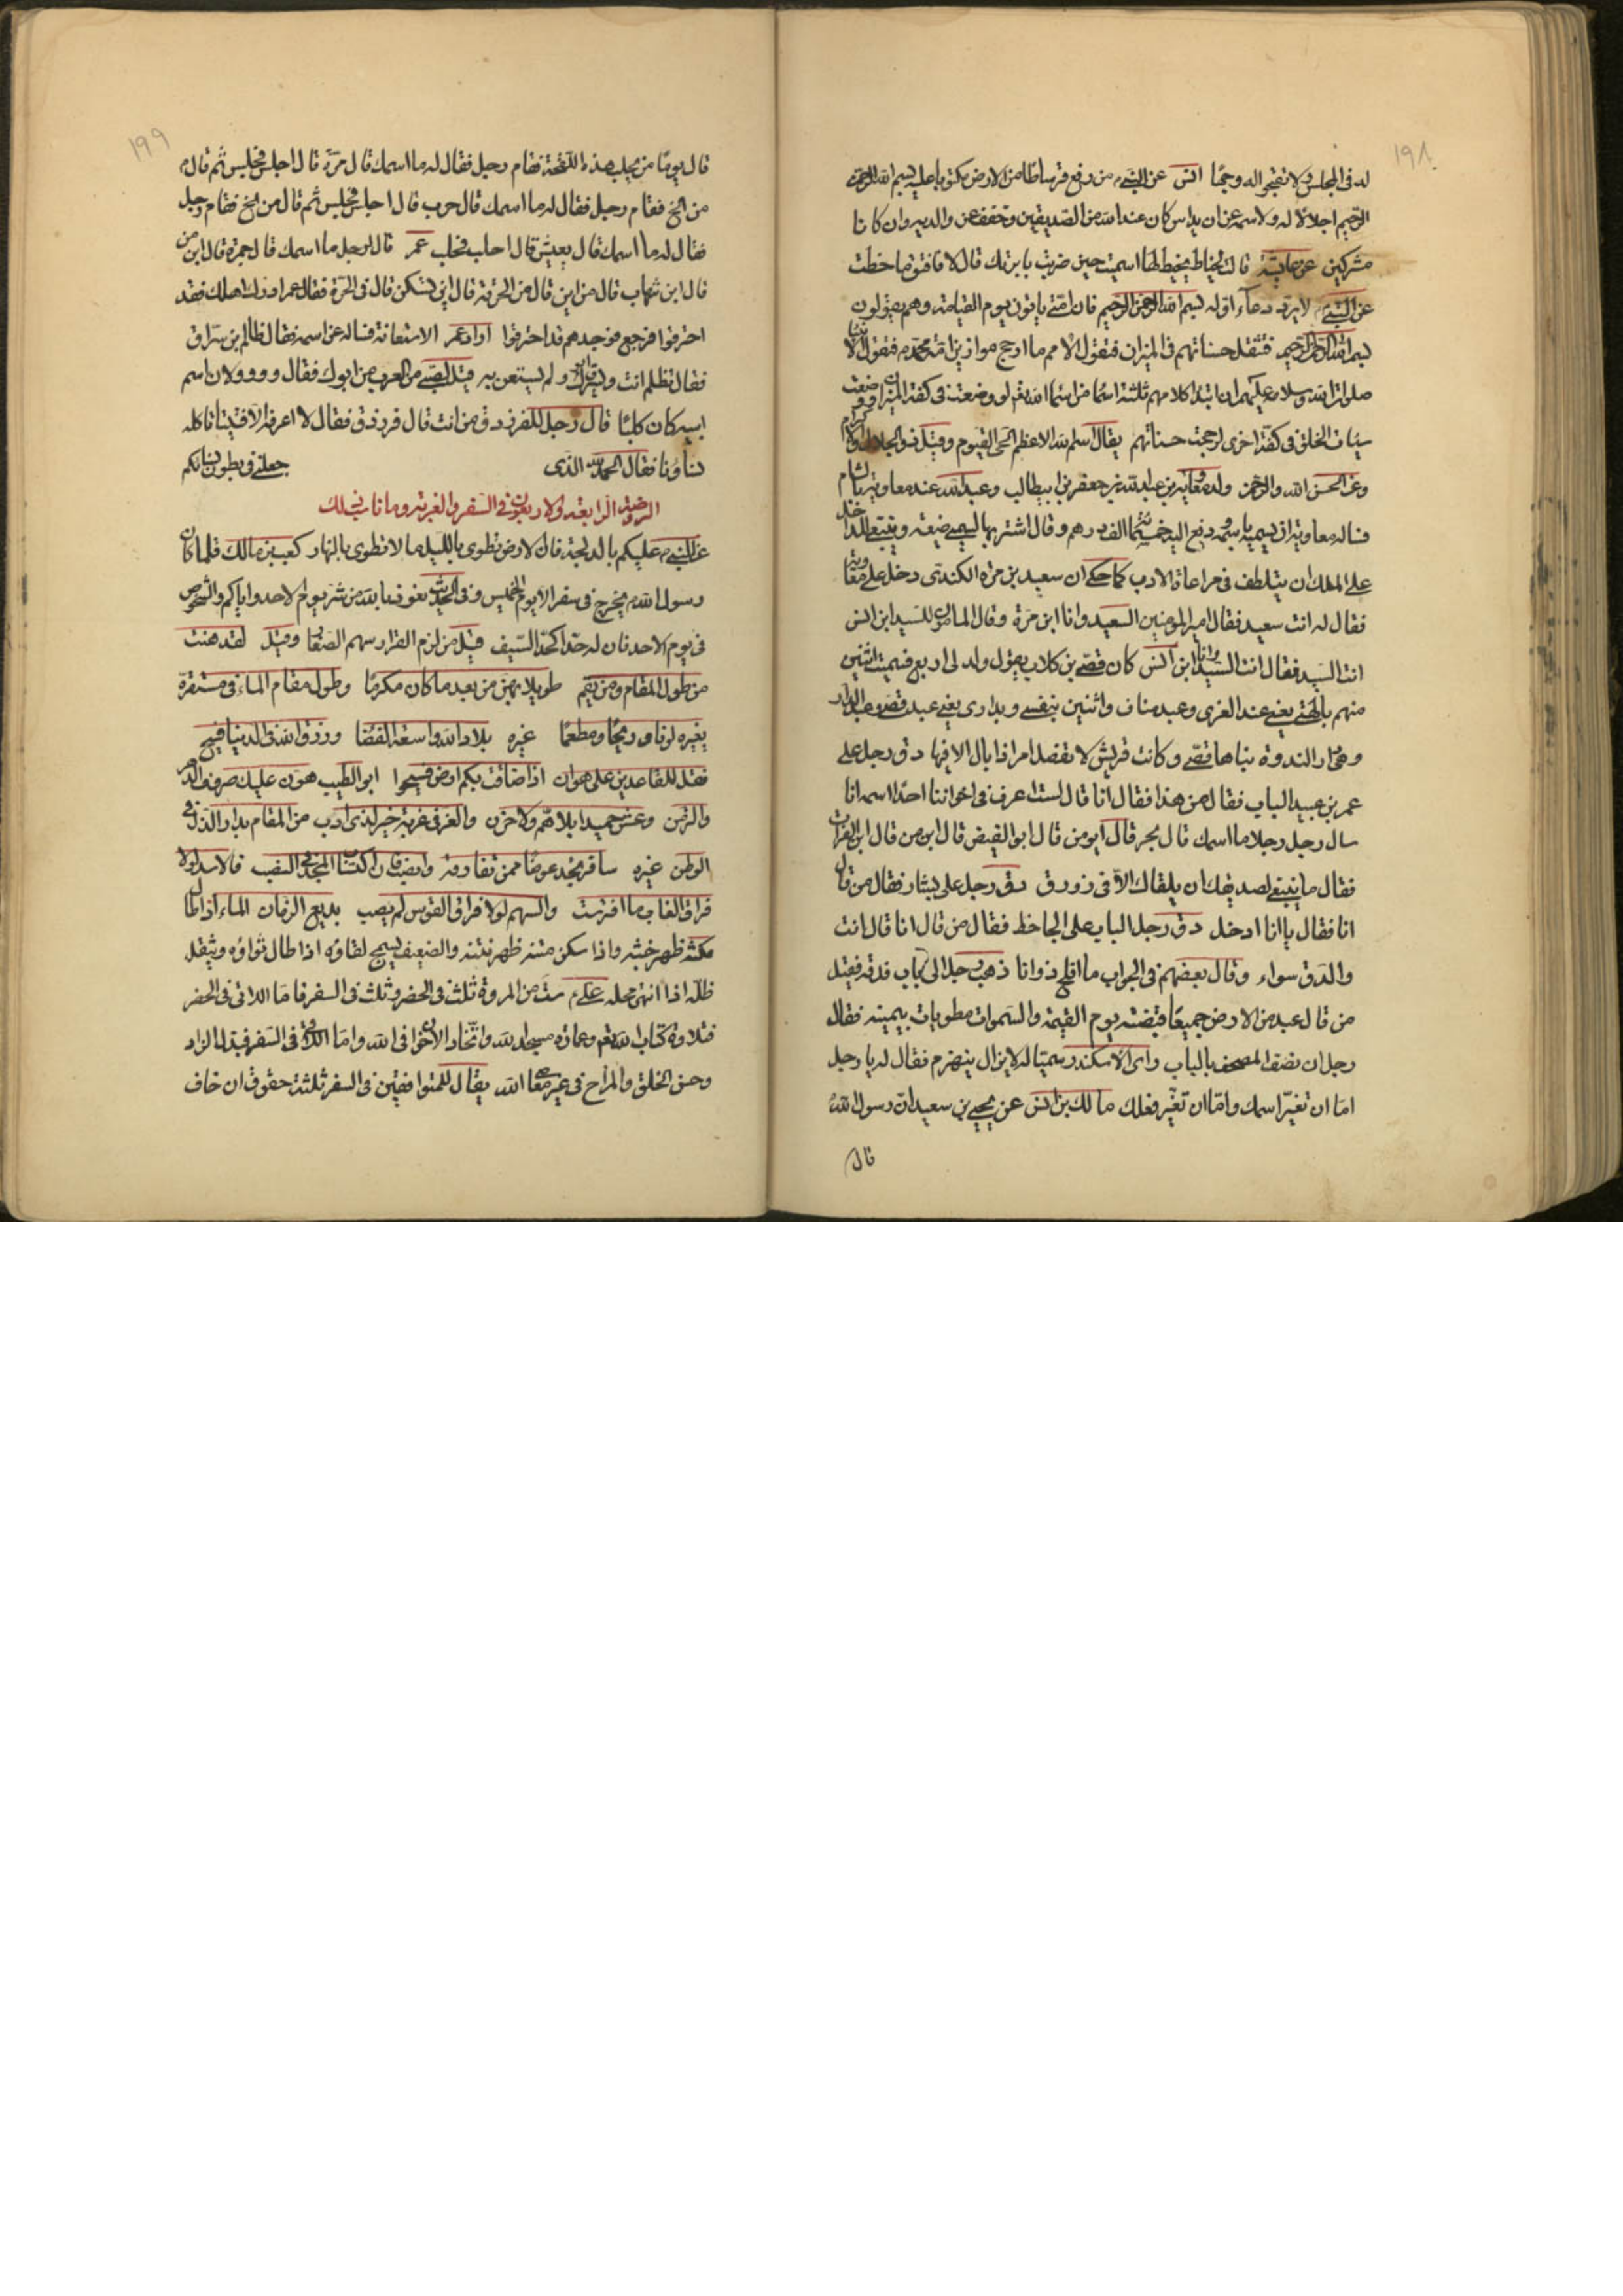 ١٩٨
له فى المجلس ولا تقبحوا له وجها انس عن النبى من رفع قرطاسا من الارض مكتوبا عليه بسم الله الرحمن
الرحيم اجلالا له ولاسمه عن ان يداس كان عند الله من الصديقين وخفف عن والديه وان كانا
مشركين عن عايشة قالت لخياط يخيط لها اسميت حين ضربت بابرتك قال لا قالت فافتق ما خطت
عن النبى لا يرد دعاء اوله بسم الله الرحمن الرحيم فان امتى ياتون يوم القيامة وهم يقولون
بسم الله الرحمن الرحيم فتثقل حسناتهم فى الميزان فتقول الامم ما ارجح موازين امة محمد فتقول الانبيا
صلوات الله وسلامه عليهم ان ابتدا كلامهم ثلثة اسما من اسما الله تعم لو وضعت فى كفة الميزان ووضعت
سيئات الخلق فى كفة اخرى لرجحت حسناتهم يقال اسم الله الاعظم الحى القيوم وقيل ذو الجلال والاكرام
وعن الحسن الله والرحمن ولد معاوية بن عبد الله بن جعفر بن ابيطالب وعبد الله عند معاوية بالشام
فساله معاوية ان يسميه باسمه ودفع اليه خمسمائة الف درهم وقال اشتر بها لسميى ضيعة وينبغى للداخل
على الملك ان يتلطف فى مراعاة الادب كما حكى ان سعيد بن مرة الكندى دخل على معاوية
فقال له انت سعيد فقال امير المومنين السعيد وانا ابن مرة وقال المامون للسيد ابن انس
انت السيد فقال انت السيد وانا ابن انس كان قصى بن كلاب يقول ولد لى اربع فسميت اثنين
منهم بالهتى يعنى عبد العزى وعبد مناف واثنين بنفسى وبدارى يعنى عبد قصى وعبد الدار
وهى دار الندوة بناها قصى وكانت قريش لا تفصل امرا ذا بال الا فيها دق رجل على
عمر بن عبيد الباب فقال من هذا فقال انا قال لست اعرف فى اخواننا احدا اسمه انا
سال رجل رجلا ما اسمك قال بحر قال ابو من قال ابو الفيض قال ابن من قال ابن الفرات
فقال ما ينبغى لصديقك ان يلقاك الا فى زورق دق رجل على بشار فقال من قال
انا فقال يا انا ادخل دق رجل الباب على الجاحظ فقال من قال انا قال انت
والدق سواء وقال بعضهم فى الجواب ما افلح ذو انا ذهب رجل الى باب فدقه فقيل
من قال عبد من الارض جميعا قبضته يوم القيمة والسموات مطويات بيمينه فقال
رجل ان نصف المصحف بالباب راى الاسكندر سميا له لا يزال ينهزم فقال له يا رجل
اما ان تغير اسمك واما ان تغير فعلك مالك بن انس عن يحيى بن سعيد ان رسول الله
قال
١٩٩
قال يوما من يحلب هذه اللقحة فقام رجل فقال له ما اسمك قال مرة قال اجلس فجلس ثم قال
من الخ فقام رجل فقال له ما اسمك قال حرب قال اجلس فجلس ثم قال من الخ فقام رجل
فقال له ما اسمك قال يعيش قال احلب فحلب عمر قال لرجل ما اسمك قال جمرة قال ابن من
قال ابن شهاب قال من اين قال من الحرقة قال اين تسكن قال فى الحرة فقال عمر ادرك اهلك فقد
احترقوا فرجع فوجدهم قد احترقوا اراد عمر الاستعانة فساله عن اسمه فقال ظالم بن سراق
فقال تظلم انت ويسرق ابوك ولم يستعن به قيل لصبى من العرب من ابوك فقال وو وو لان اسم
ابيه كان كلبا قال رجل للفرزدق من انت قال فرزدق فقال لا اعرفه الا فتيتا تاكله
نساؤنا فقال الحمد لله الذى جعلنى فى بطون نسائكم
الروضة الرابعة والاربعون فى السفر والغربة وما ناسب ذلك
عن النبى عليكم بالدلجة فان الارض تطوى بالليل ما لا تطوى بالنهار كعب بن مالك قلما كان
رسول الله يخرج فى سفر الا يوم الخميس وفى الحديث نعوذ بالله من شر يوم الاحد واياكم والشخوص
فى يوم الاحد فان له حدا كحد السيف قيل من لزم القرار سهم الصغا وقيل لقد هنت
من طول المقام ومن يقم طويلا يهن من بعد ما كان مكرما وطول مقام الماء فى مستقره
يغيره لونا وريحا ومطعما غيره بلاد الله واسعة الفضا ورزق الله فى الدنيا فسيح
فقل للقاعدين على هوان اذا ضاقت بكم ارض فسيحوا ابو الطيب هون عليك صروف الدهر
والزمن وعش حميدا بلا هم ولا حزن والعز فى غربة خير لذى ادب من المقام بدار الذل فى
الوطن غيره سافر تجد عوضا ممن تفارقه وانصب فان اكتساب المجد فى النصب فالاسد لولا
فراق الغاب ما افترست والسهم لولا فراق القوس لم يصب بديع الزمان الماء اذا طال
مكثه ظهر خبثه واذا سكن متنه ظهر نتنه والضيف يسمج لقاؤه اذا طال ثواؤه ويثقل
ظله اذا انتهى محله على ست من المروة ثلث فى الحضر وثلث فى السفر فاما اللاتى فى الحضر
فتلاوة كتاب الله تعم وعمارة مسجد الله واتخاذ الاخوان فى الله واما اللاتى فى السفر فبذل الزاد
وحسن الخلق والمزاح فى غير معاصى الله يقال للمتوافقين فى السفر ثلثة حقوق ان خاف